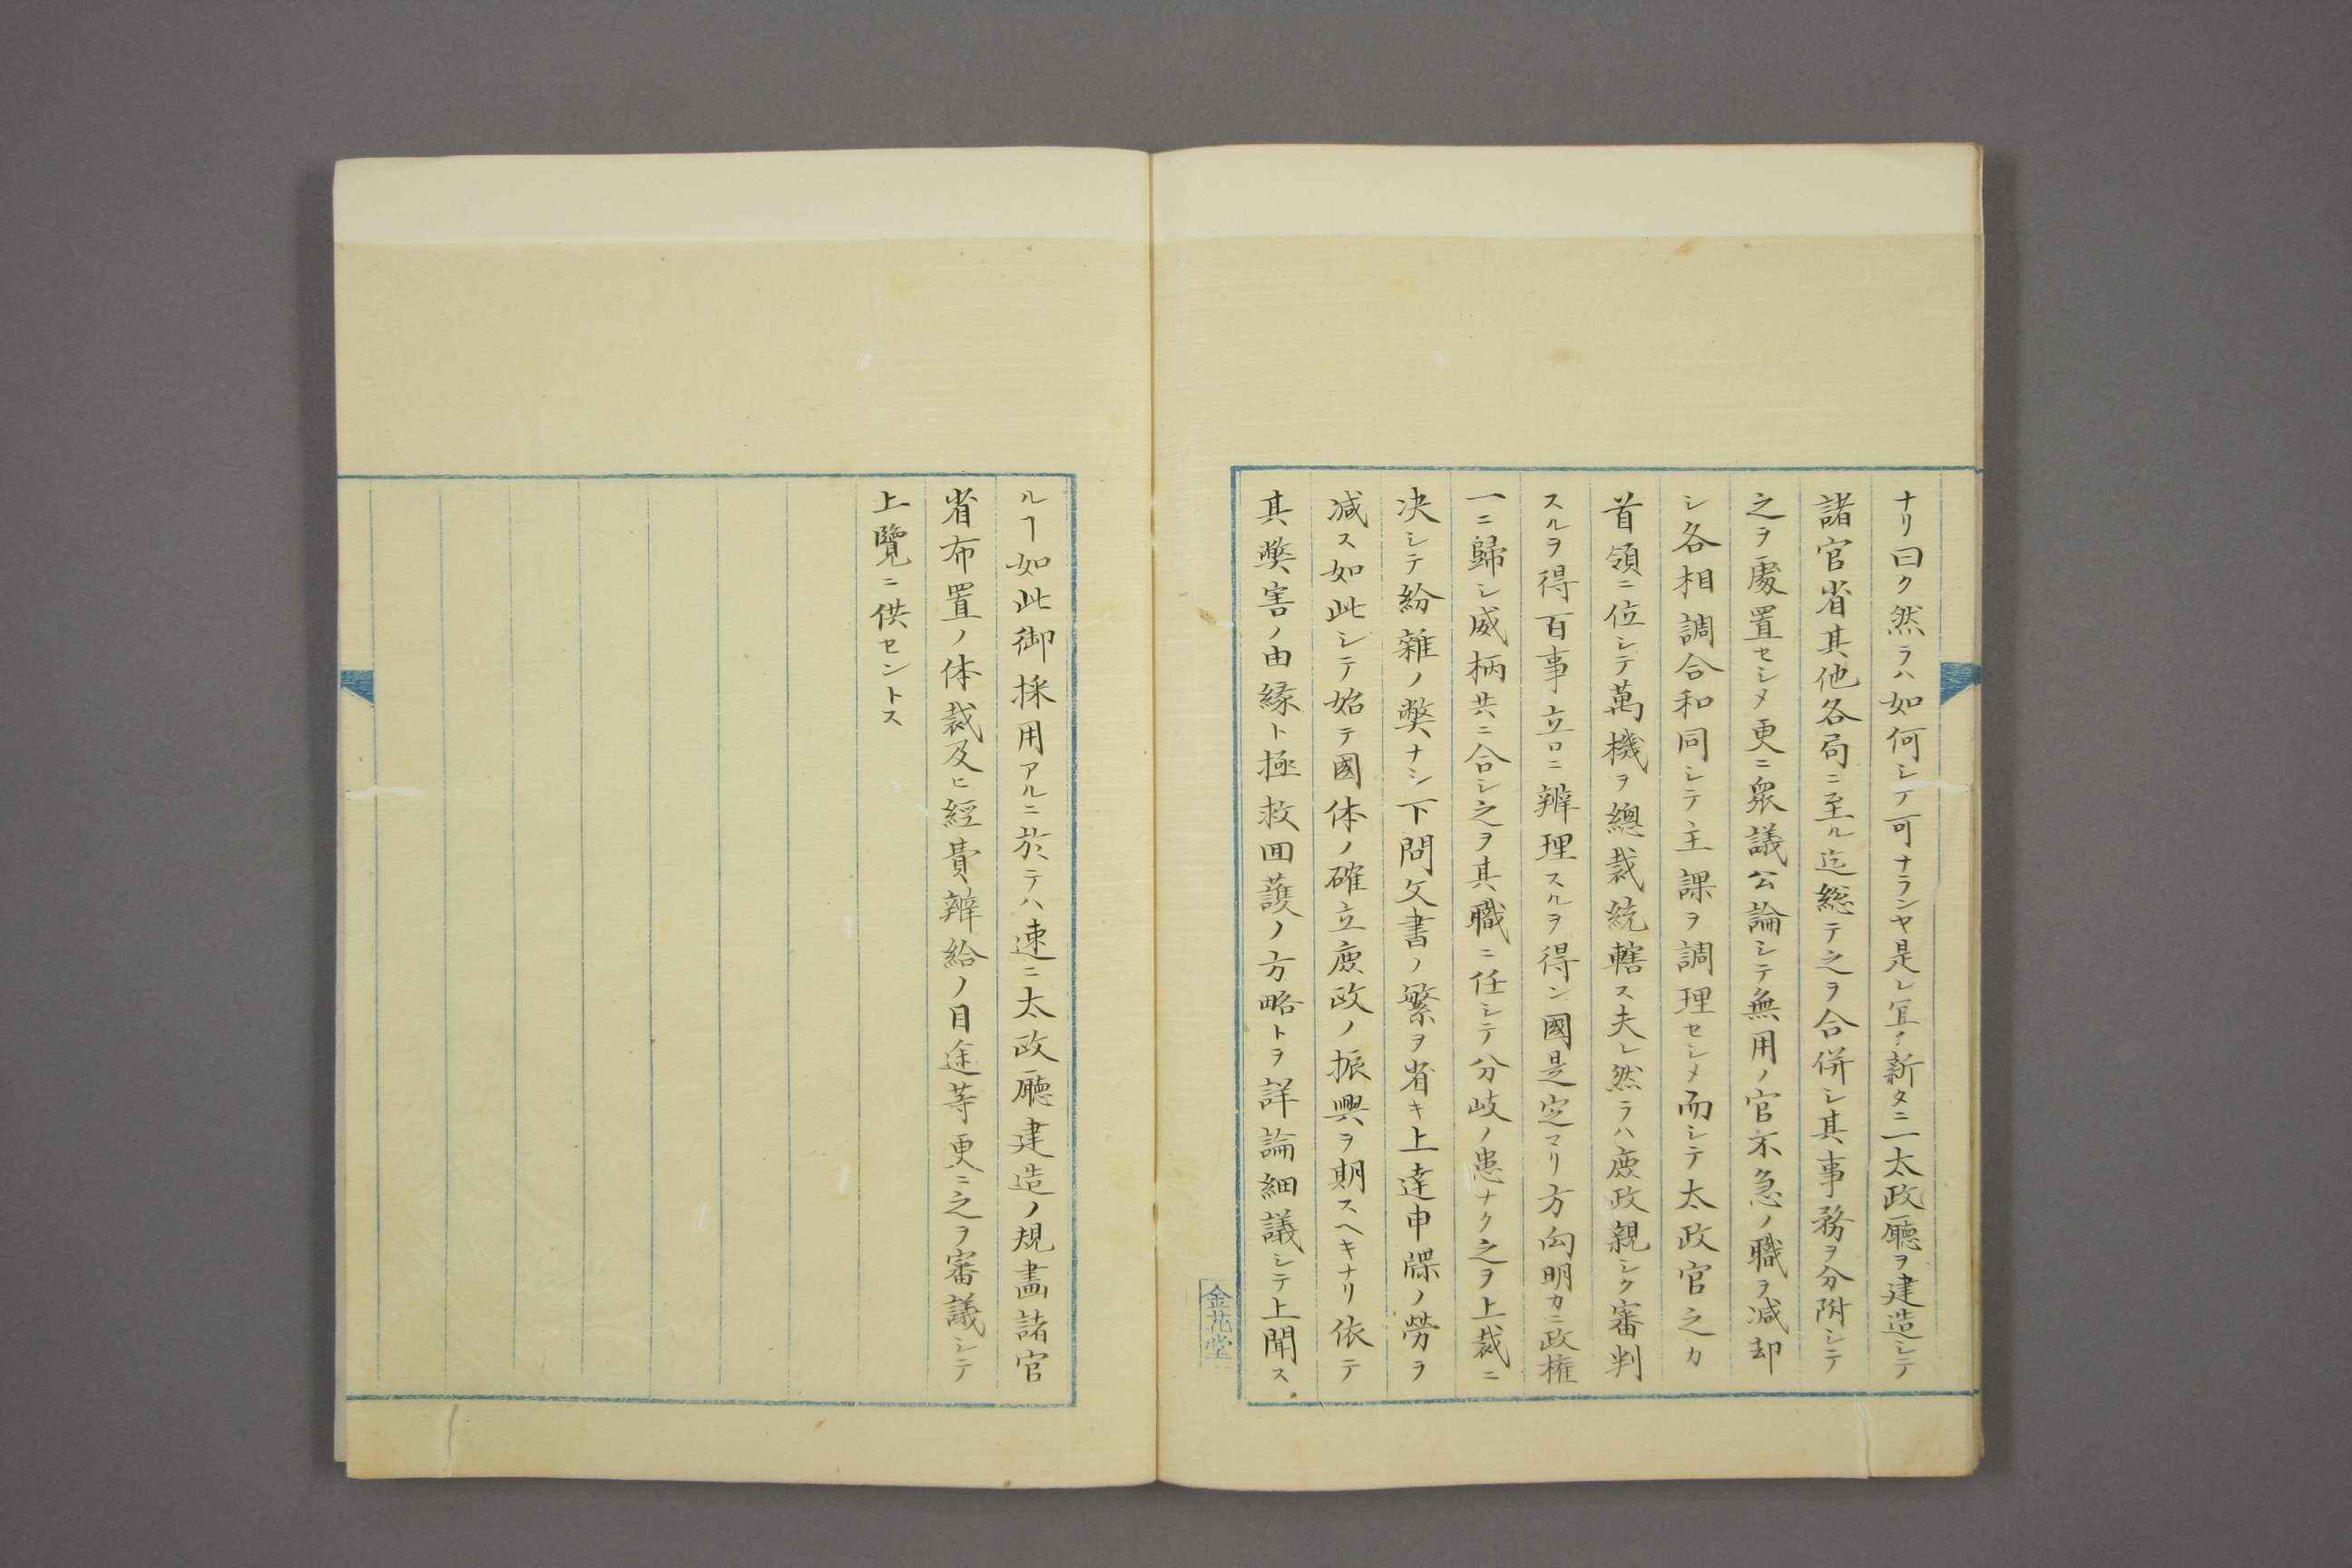 ナリ曰ク然ラハ如何シテ可ナランヤ是レ宜ク新タニ一太政廳ヲ建造シテ
諸官省其他各局ニ至ル迄総テ之ヲ合併シ其事務ヲ分附シテ
之ヲ處置セシメ更ニ衆議公論シテ無用ノ官不急ノ職ヲ減却
シ各相調合和同シテ主課ヲ調理セシメ而シテ太政官之カ
首領ニ位シテ萬機ヲ總裁統轄ス夫レ然ラハ庶政親シク審判
スルヲ得百事立ロニ辨理スルヲ得ン國是定マリ方向明カニ政権
一ニ歸シ威柄共ニ合シ之ヲ其職ニ任シテ分岐ノ患ナク之ヲ上裁ニ
决シテ紛雜ノ弊ナシ下問文書ノ繁ヲ省キ上達申牒ノ勞ヲ
減ス如此シテ始テ國体ノ確立庶政ノ振興ヲ期スヘキナリ依テ
其弊害ノ由縁ト極救囬護ノ方略トヲ詳論細議シテ上聞ス
ルヿ如此御採用アルニ於テハ速ニ太政廳建造ノ規畫諸官
省布置ノ体裁及ヒ經費辨給ノ目途等更ニ之ヲ審議シテ
上覽ニ供セントス
金花堂